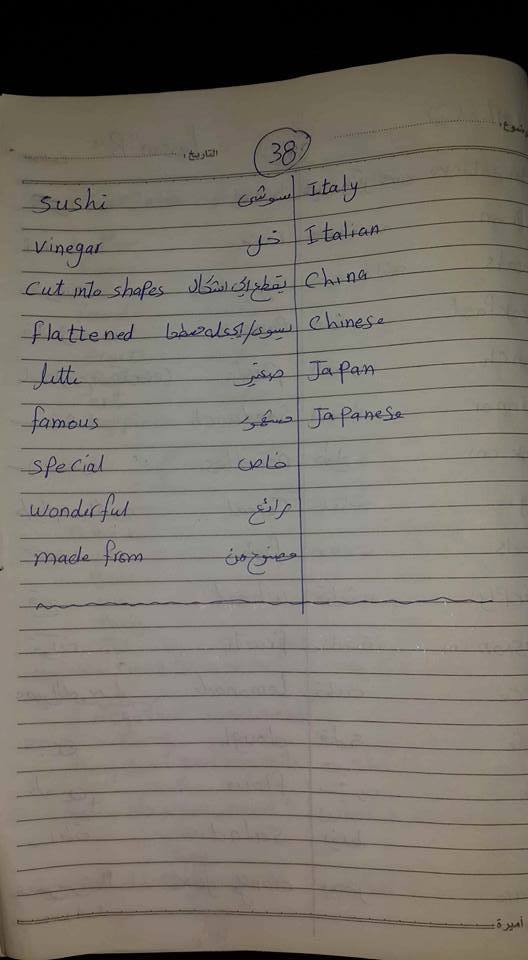 الموضوع:
التاريخ:
38
sushi سوشى Italy
vinegar خل Italian
cut into shapes يقطع إلى اشكال China
flattened يسوى/يجعله مسطحا Chinese
صغير Japan
famous مشهور Japanese
special خاص
wonderful رائع
made from مصنوع من
أميرة